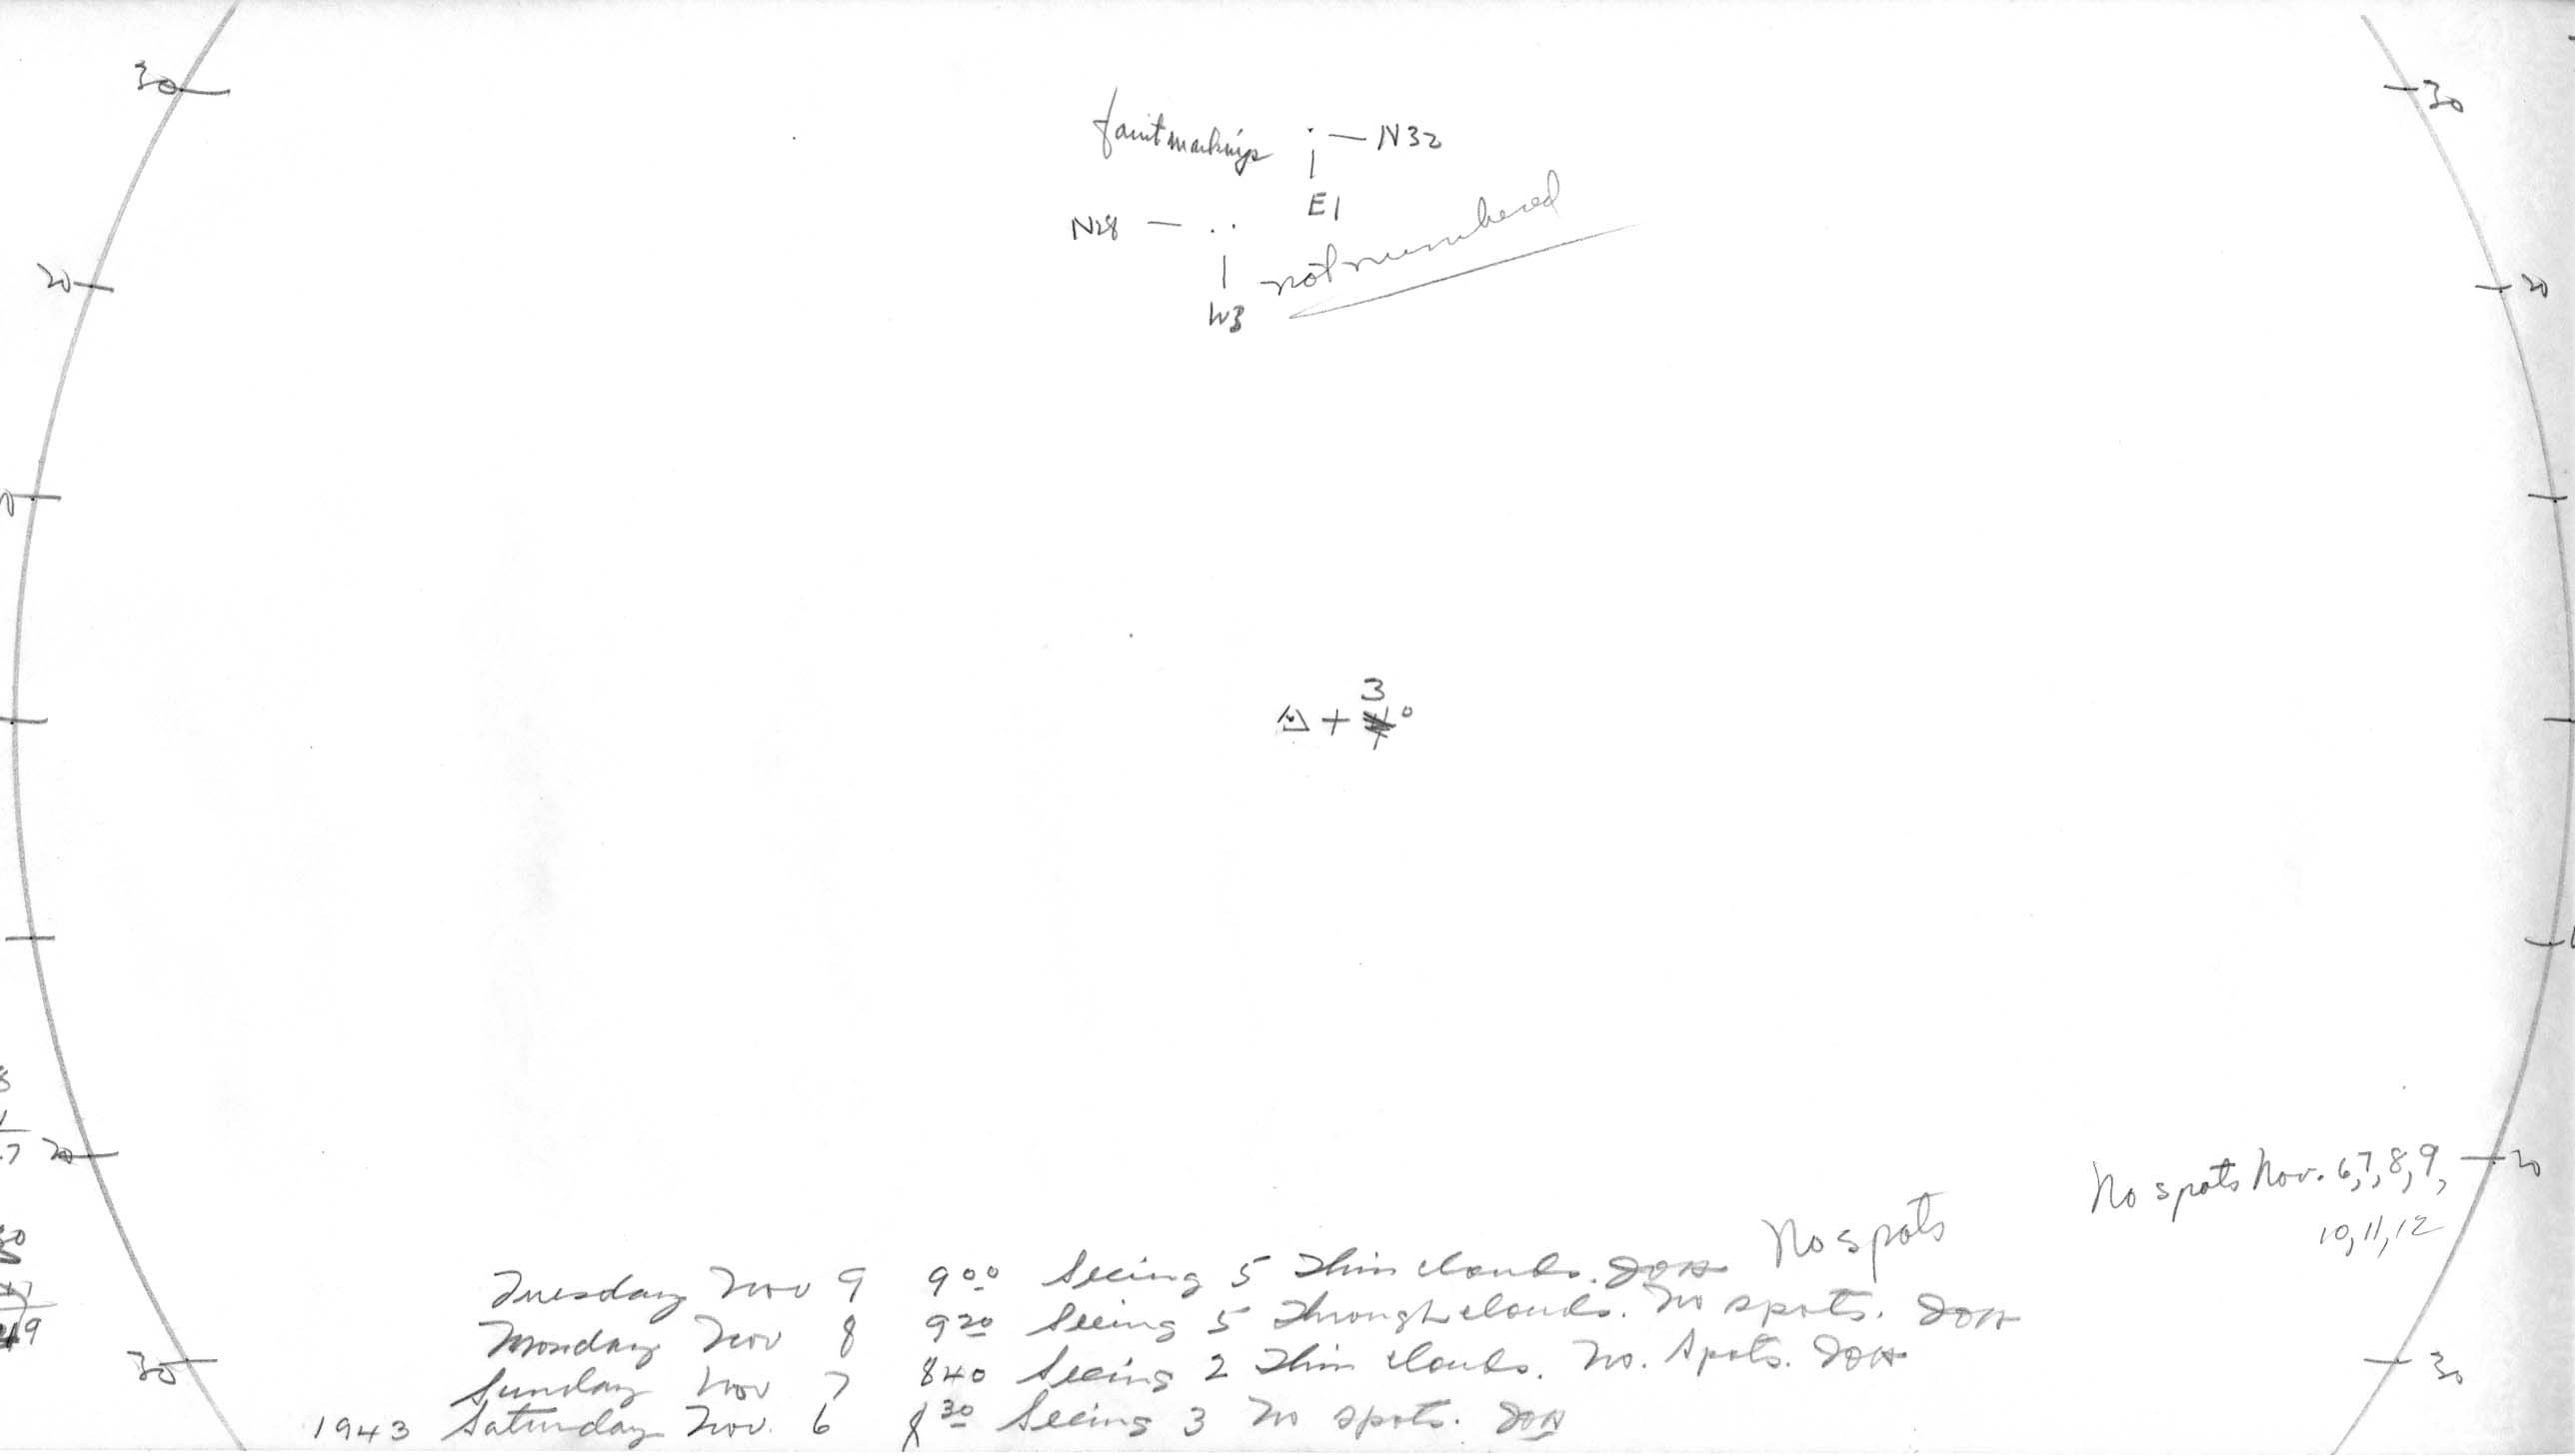 30 30
faint markings — N32
E1
N28 —
not numbered
W3
20 20
3
+ °
8
7 20 20
No spots Nov. 6,7,8,9,
10,11,12
No spots
Tuesday Nov 9 9 00 Seeing 5 Thin clouds.
Monday Nov 8 9 20 Seeing 5 Through clouds. No spots.
Sunday Nov 7 8 40 Seeing 2 Thin clouds. No. Spots.
1943 Saturday Nov. 6 8 30 Seeing 3 No spots.
49
30 30